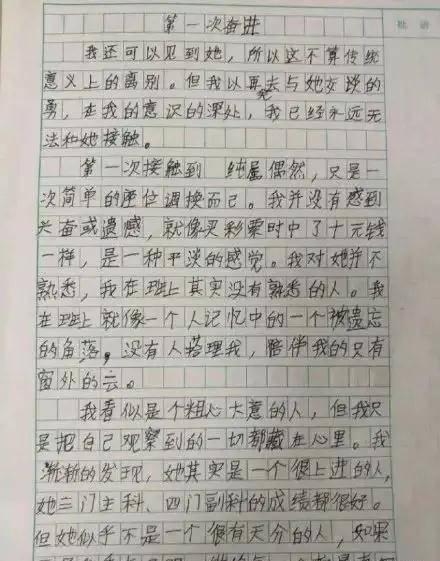 第一次奋进
批 语
我还可以见到她，所以这不算传统
意义上的离别。但我以再去与她交谈的
勇，在我的意识的深处，我已经永远无
法和她接触。
第一次接触到 纯属偶然，只是一
次简单的座位调换而已。我并没有感到
兴奋或遗憾，就像买彩票时中了十元钱
一样，是一种平淡的感觉。我对她并不
熟悉，我在班上其实没有熟悉的人。我
在班上就像一个人记忆中的一个被遗忘
的角落，没有人搭理我，陪伴我的只有
窗外的云。
我看似是个粗心大意的人，但我只
是把自己观察到的一切都藏在心里。我
渐渐的发现，她其实是一个很上进的人，
她三门主科、四门副科的成绩都很好。
但她似乎不是一个很有天分的人，如果